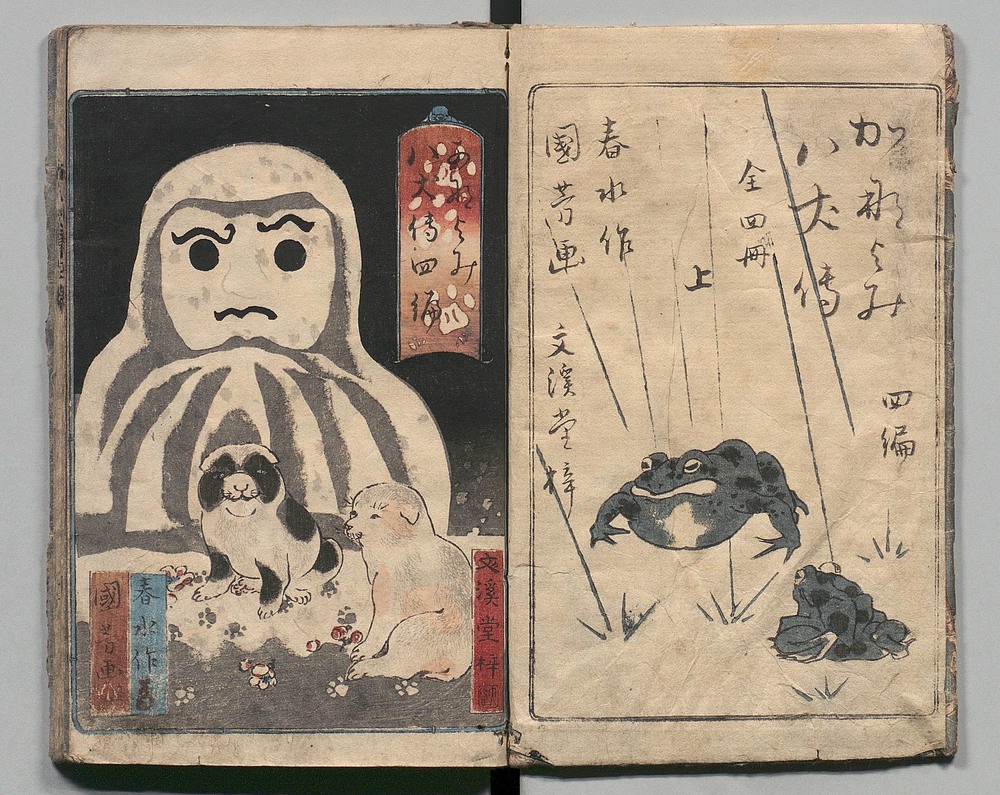 かな よみ
八犬傳
四編
全四冊
上
春水作
國芳画
文溪堂梓
八犬傳四編
春水作
國芳画
文溪堂梓